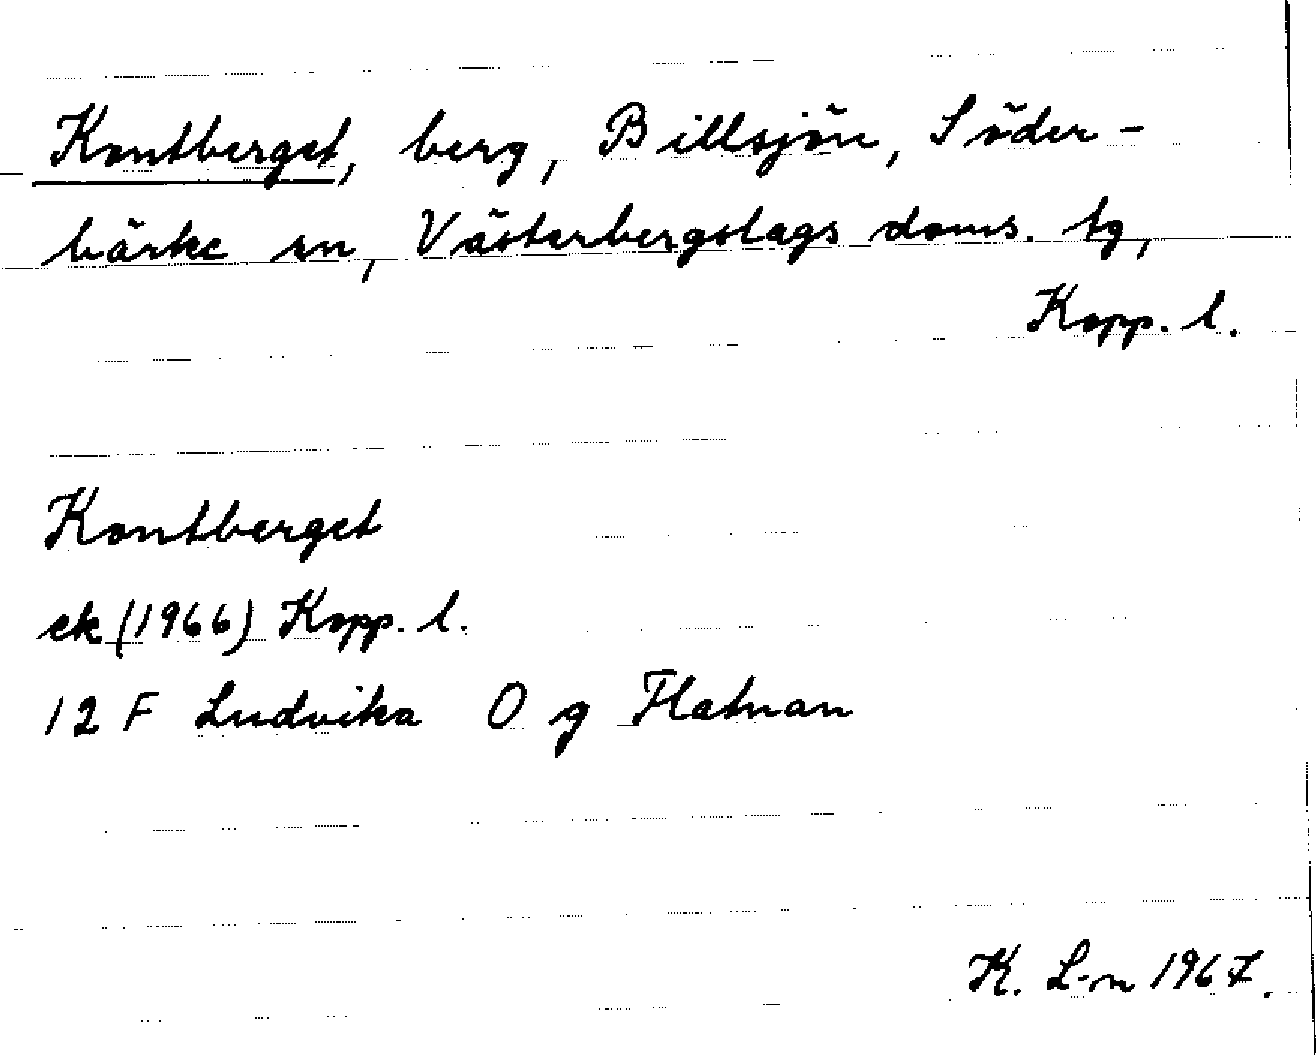 Kontberget, berg, Billsjön, Söder-
bärke sn, Västerbergslags doms. tg,
Kopp. l.
Kontberget
ek (1966) Kopp. l.
12 F Ludvika O g Flatnan
K. L-n 1967.